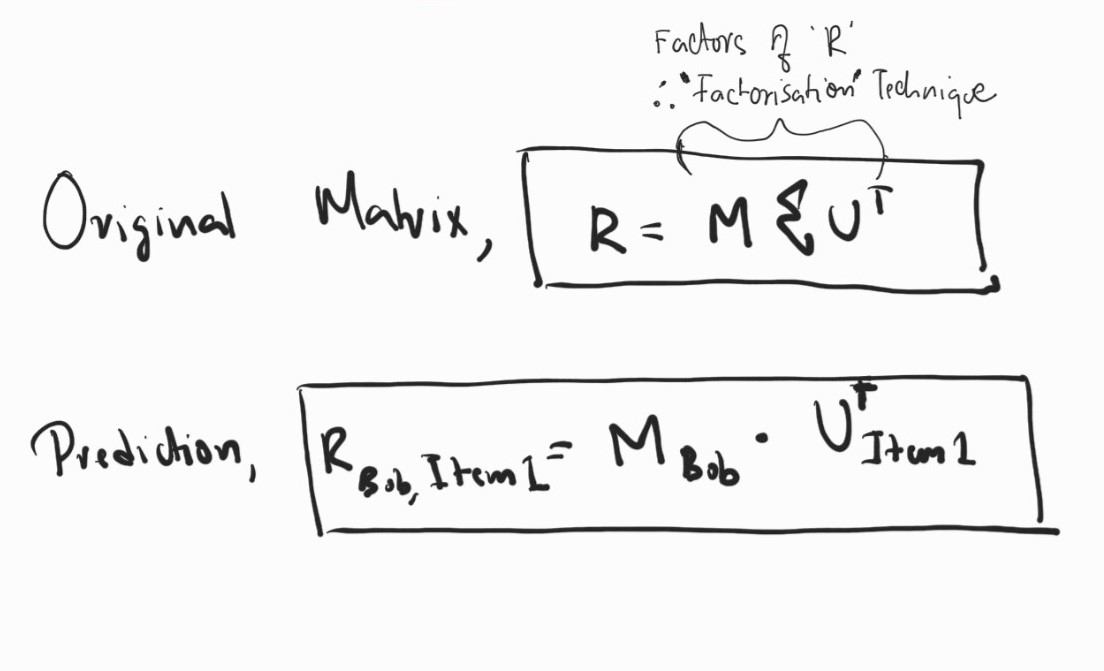 Factors of 'R'
∴ "Factorisation" Technique
Original Matrix, R = M Σ Uᵀ
Prediction, R Bob, Item1 = M Bob · Uᵀ Item1